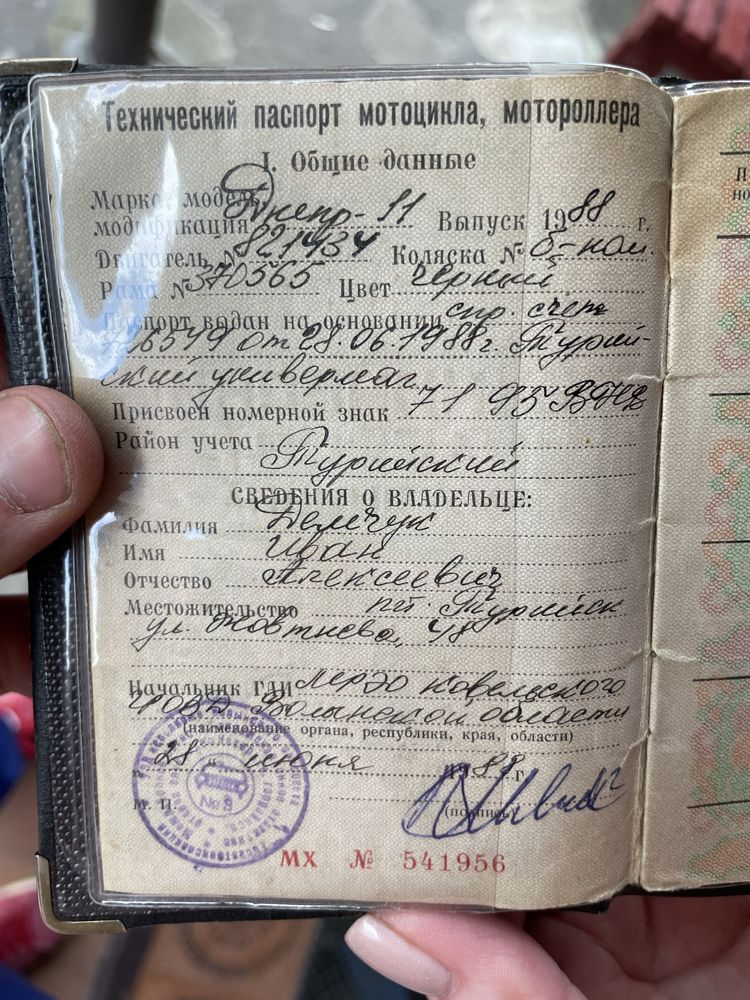 Технический паспорт мотоцикла, мотороллера
I. Общие данные
Марка, модель,
модификация Днепр-11 Выпуск 1988 г.
Двигатель № 821434 Коляска № б-ном.
Рама № 370565 Цвет черный
Паспорт выдан на основании спр. счет
от 28.06.1988г. Турий-
ский универмаг
Присвоен номерной знак 71 95
Район учета
Турийский
СВЕДЕНИЯ О ВЛАДЕЛЬЦЕ:
Фамилия Демчук
Имя Иван
Отчество Алексеевич
Местожительство пгт. Турийск
ул. Жовтнева, 48
Начальник ГАИ МРЭО Ковельского
Волынской области
(наименование органа, республики, края, области)
" 28 " июня 1988 г.
М. П. (подпись)
№ 3
МХ № 541956
П
но